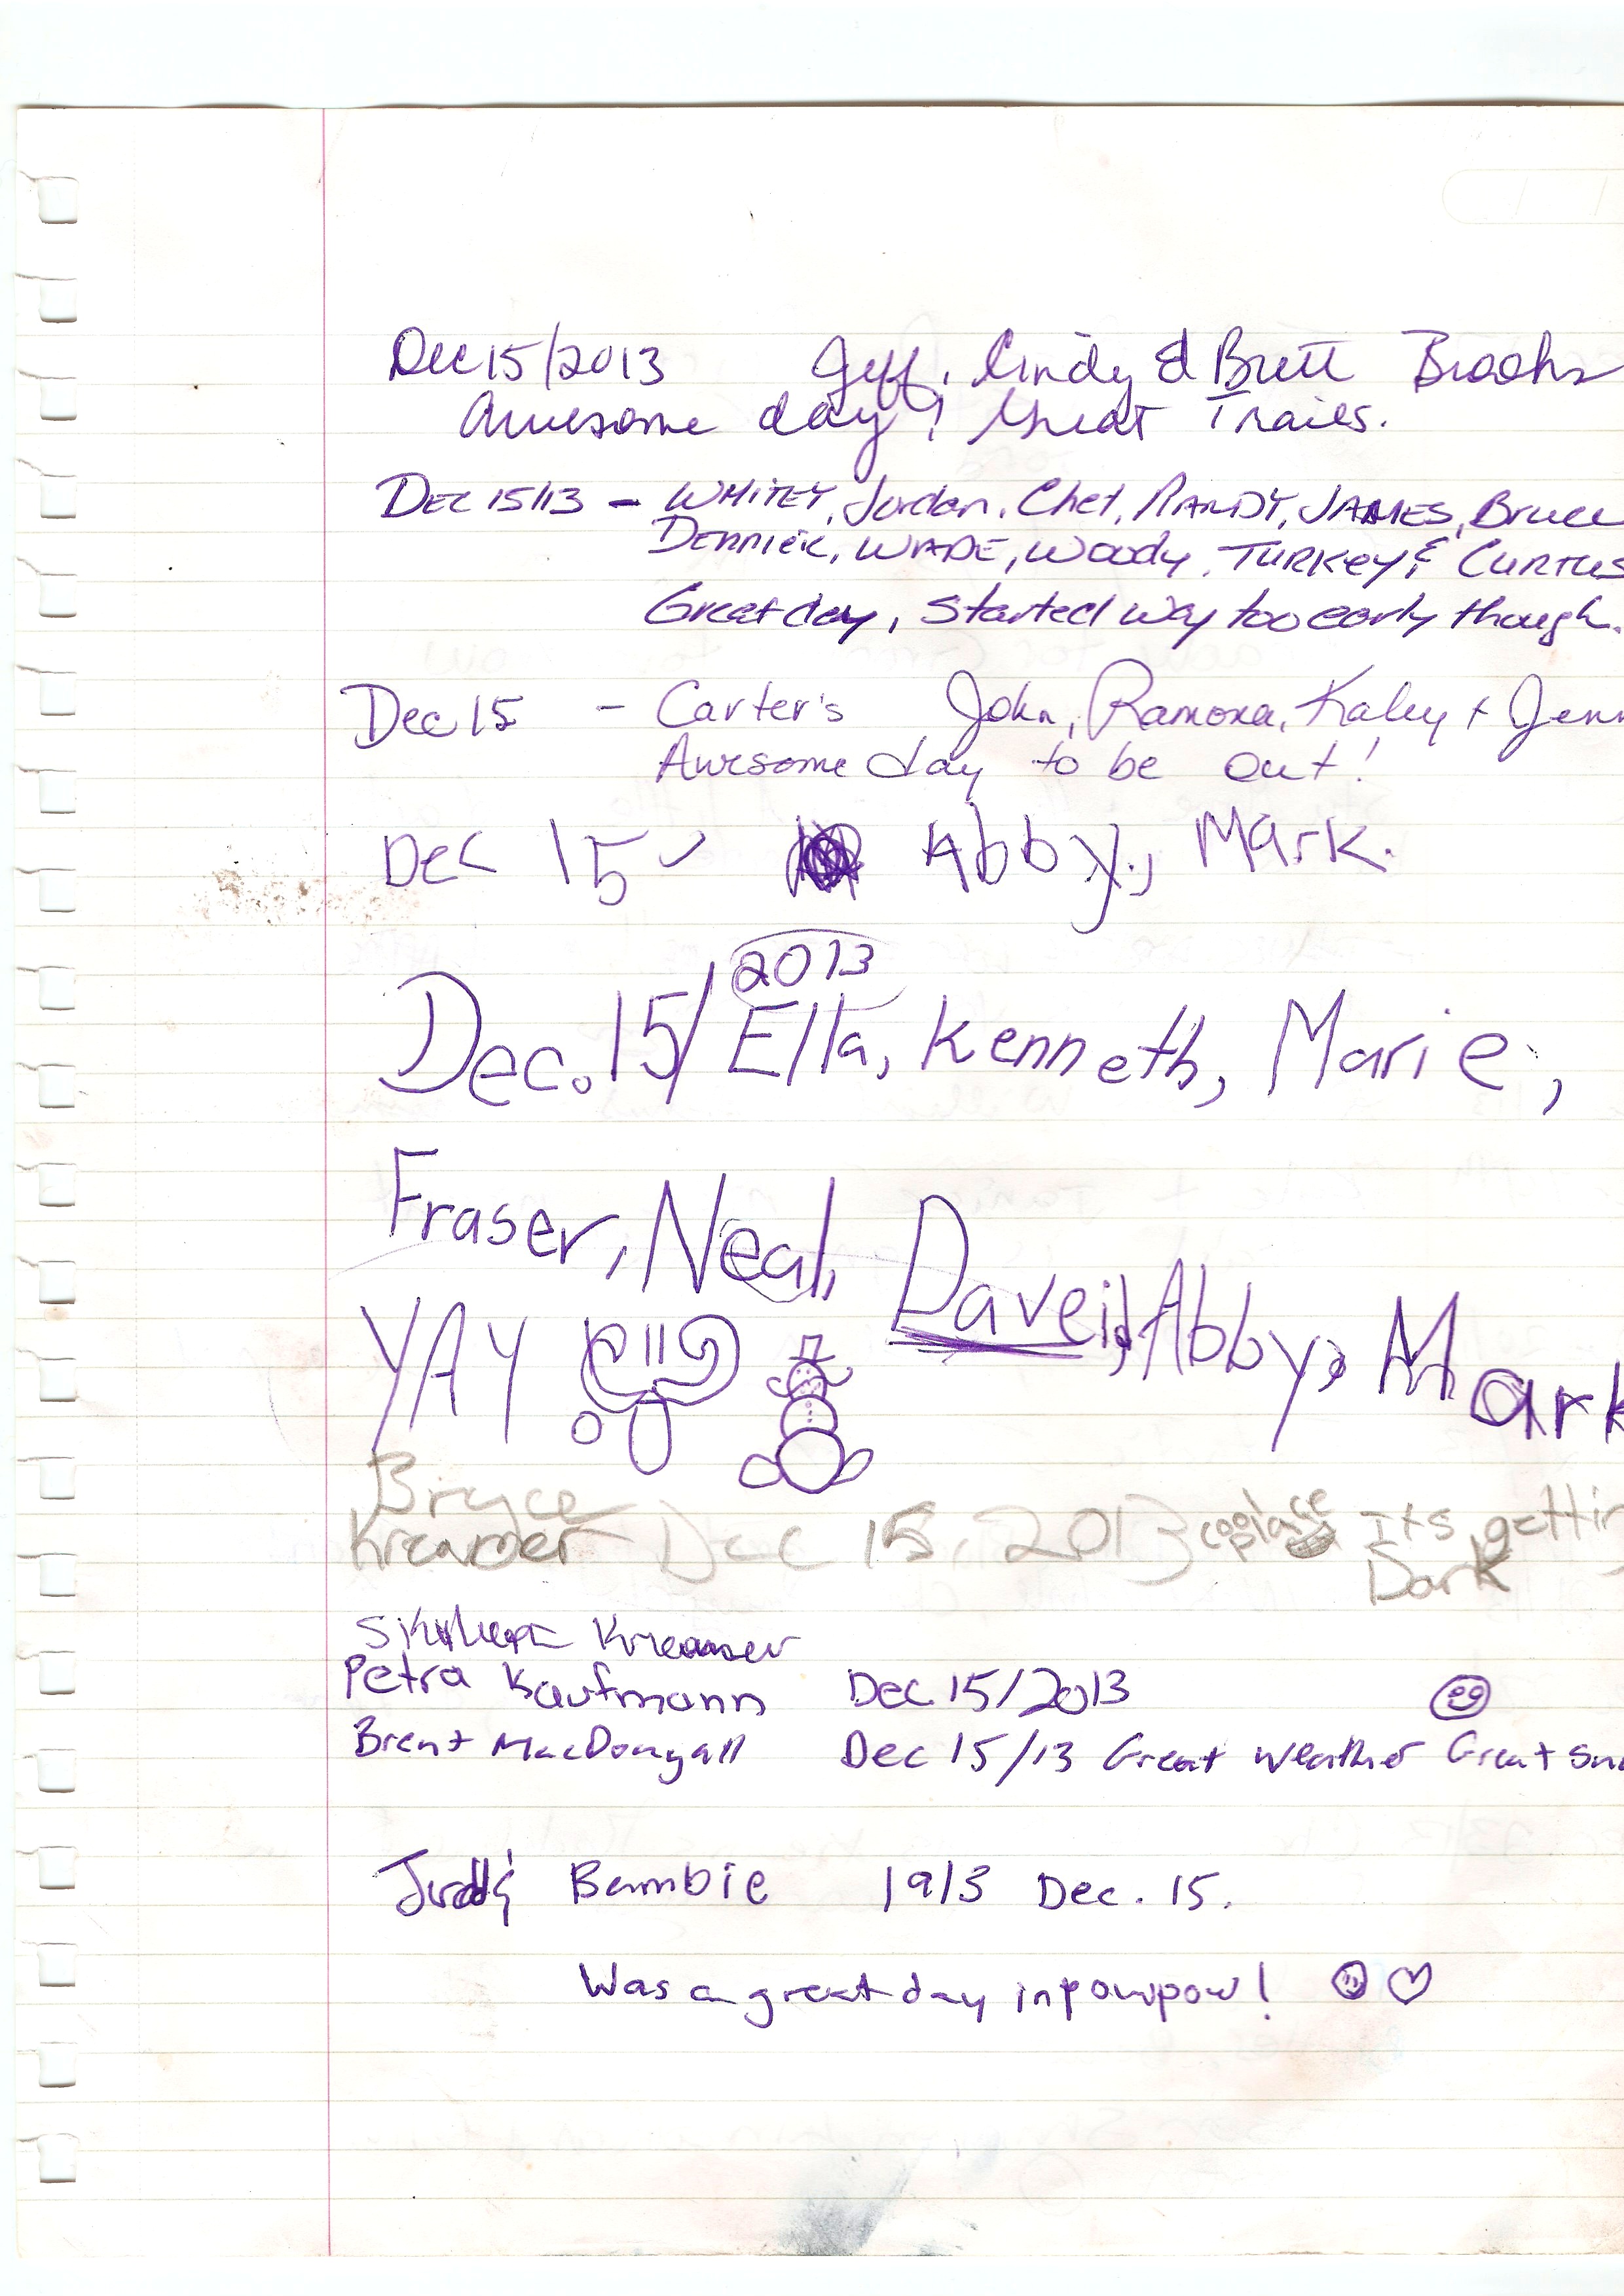 Dec 15/2013 Jeff, Cindy & Brett Brooks
Awesome day! Great Trails.
DEC 15/13 - WHITEY, Jordan, Chet, RANDY, JAMES, Bruce
DERRICK, WADE, Woody, TURKEY & CURTIS
Great day, started way too early though.
Dec 15 - Carter's John, Ramona, Kaley + Jenn
Awesome day to be out!
Dec 15 Abby, Mark.
2013
Dec. 15/ Ella, Kenneth, Marie,
Fraser, Neal, Daveid, Abby, Mark
YAY
Bryce
Kreamer Dec 15, 2013 cool place Its gettin
Dark
Kreamer
Petra Kaufmann Dec 15/2013
Brent MacDougall Dec 15/13 Great weather Great sn
Bambie 1913 Dec. 15.
Was a great day in powpow!